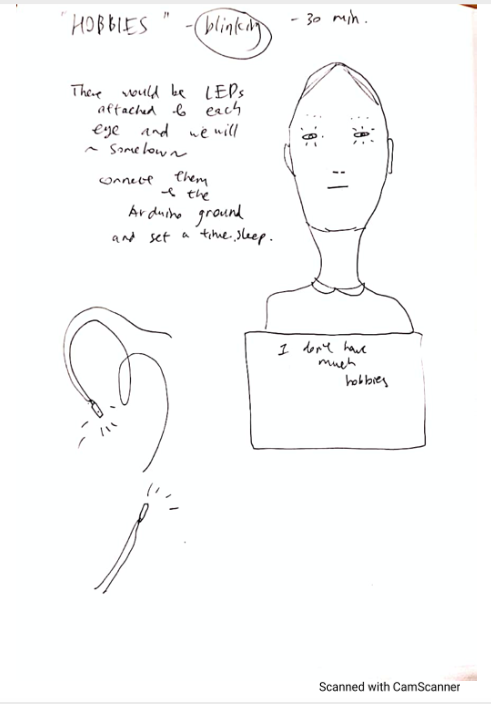 "HOBBIES" - blinking - 30 min.
There would be LEDs
attached to each
eye and we will
~ somehow ~
connect them
to the
Arduino ground
and set a time.sleep.
I don't have
much
hobbies
Scanned with CamScanner